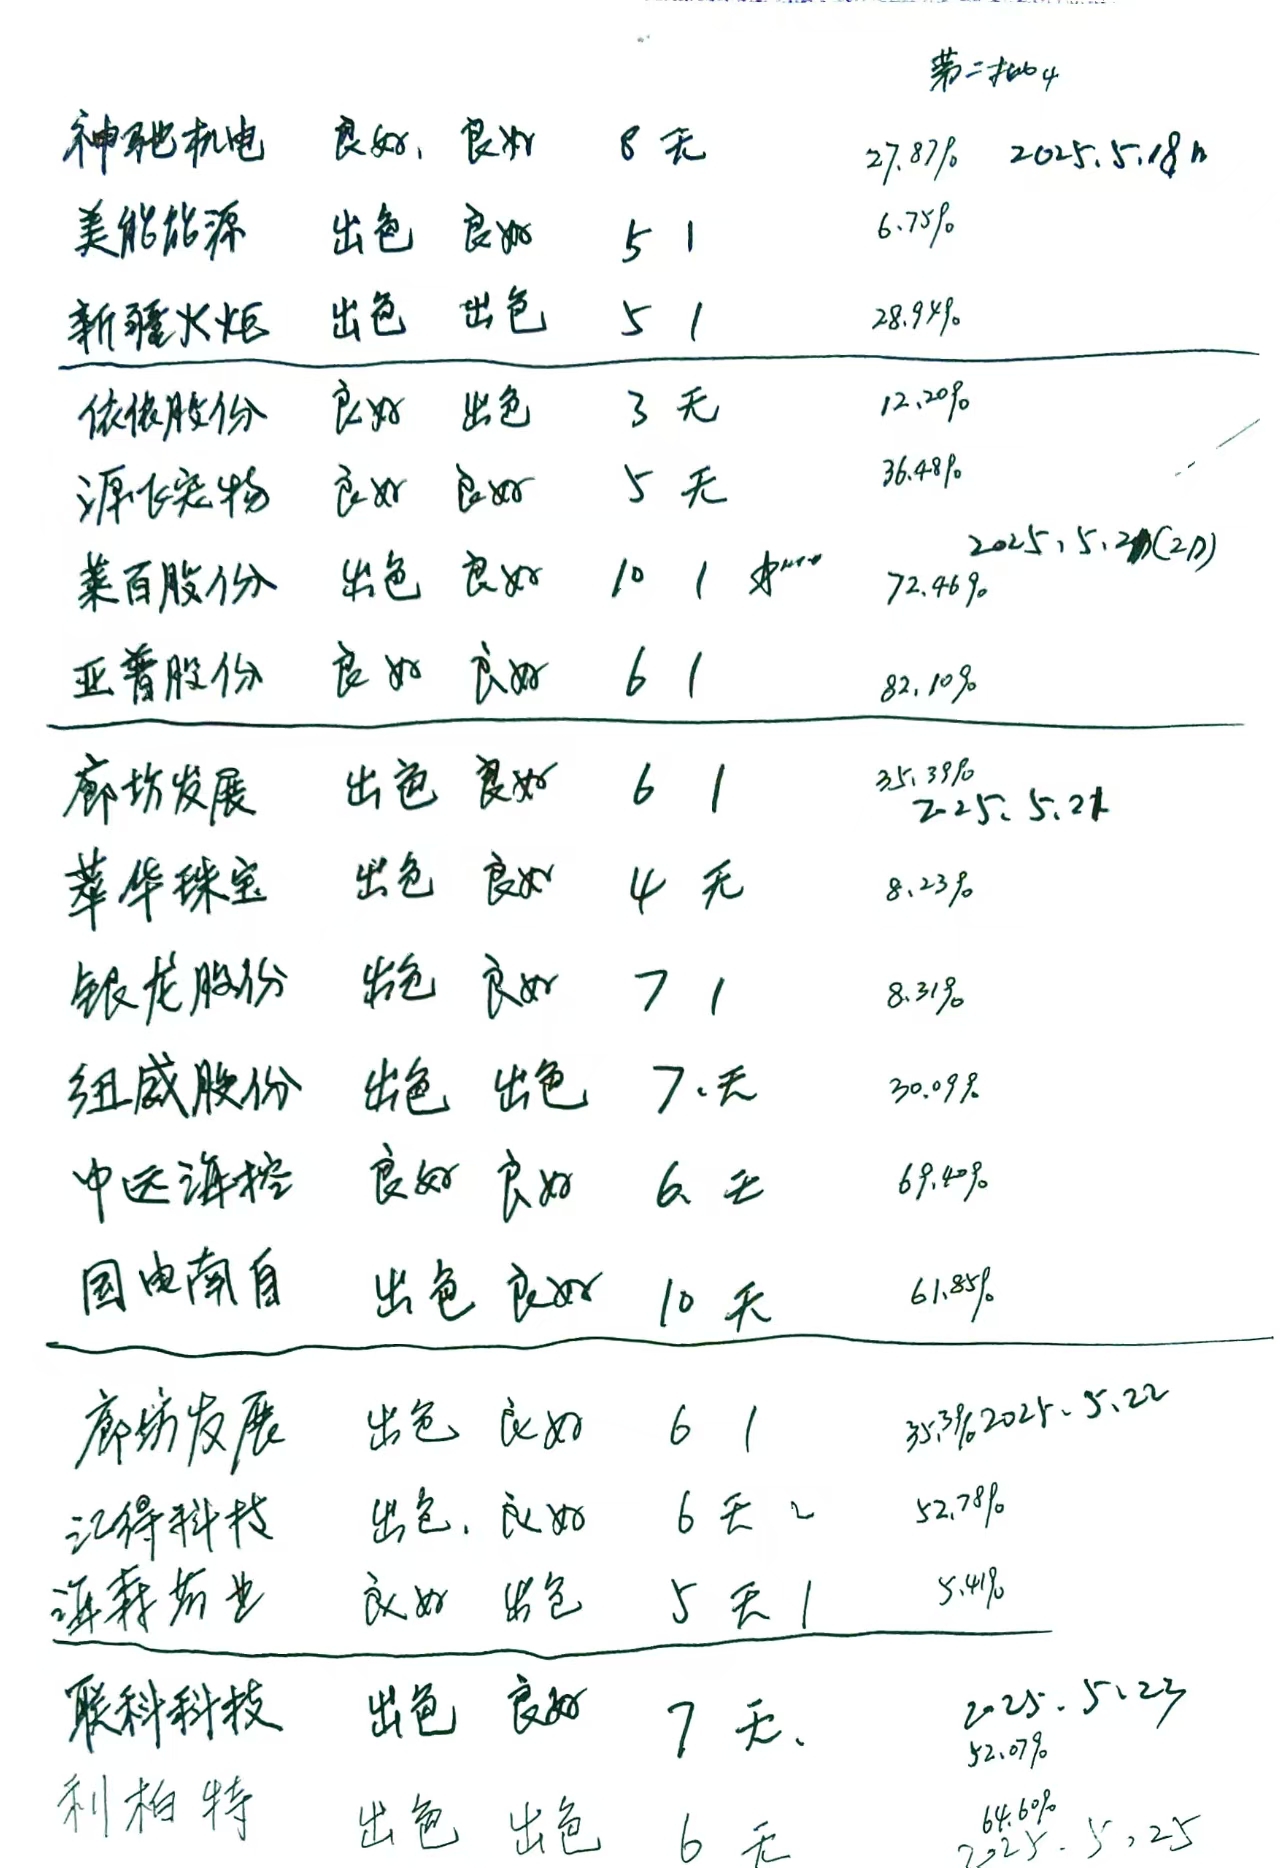 第二批4
神驰机电 良好、良好 8 无 27.87% 2025.5.18
美能能源 出色 良好 5 1 6.75%
新疆火炬 出色 出色 5 1 28.94%
依依股份 良好 出色 3 无 12.20%
源飞宠物 良好 良好 5 无 36.48%
2025.5.2 (2D)
菜百股份 出色 良好 10 1 72.46%
亚普股份 良好 良好 6 1 82.10%
廊坊发展 出色 良好 6 1 35.39%
2025.5.21
萃华珠宝 出色 良好 4 无 8.23%
银龙股份 出色 良好 7 1 8.31%
纽威股份 出色 出色 7.无 30.09%
中远海控 良好 良好 6. 无 69.40%
国电南自 出色 良好 10 无 61.85%
廊坊发展 出色 良好 6 1 35.39% 2025.5.22
汉得科技 出色. 良好 6 无 2 52.78%
海森药业 良好 出色 5 无 1 5.41%
联科科技 出色 良好 7 无、 2025.5.23
52.07%
利柏特 出色 出色 6 无 64.60%
2025.5.25